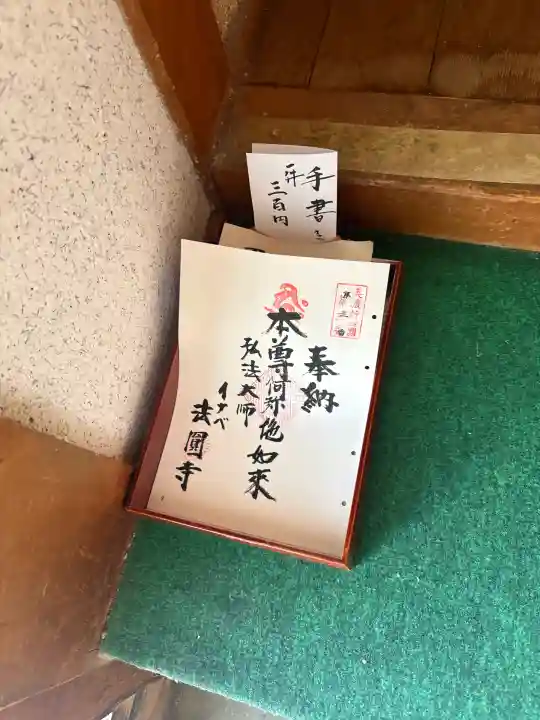 手書き
一件
三百円
奉納
本尊阿弥陀如来
弘法大師
イナベ
法圓寺